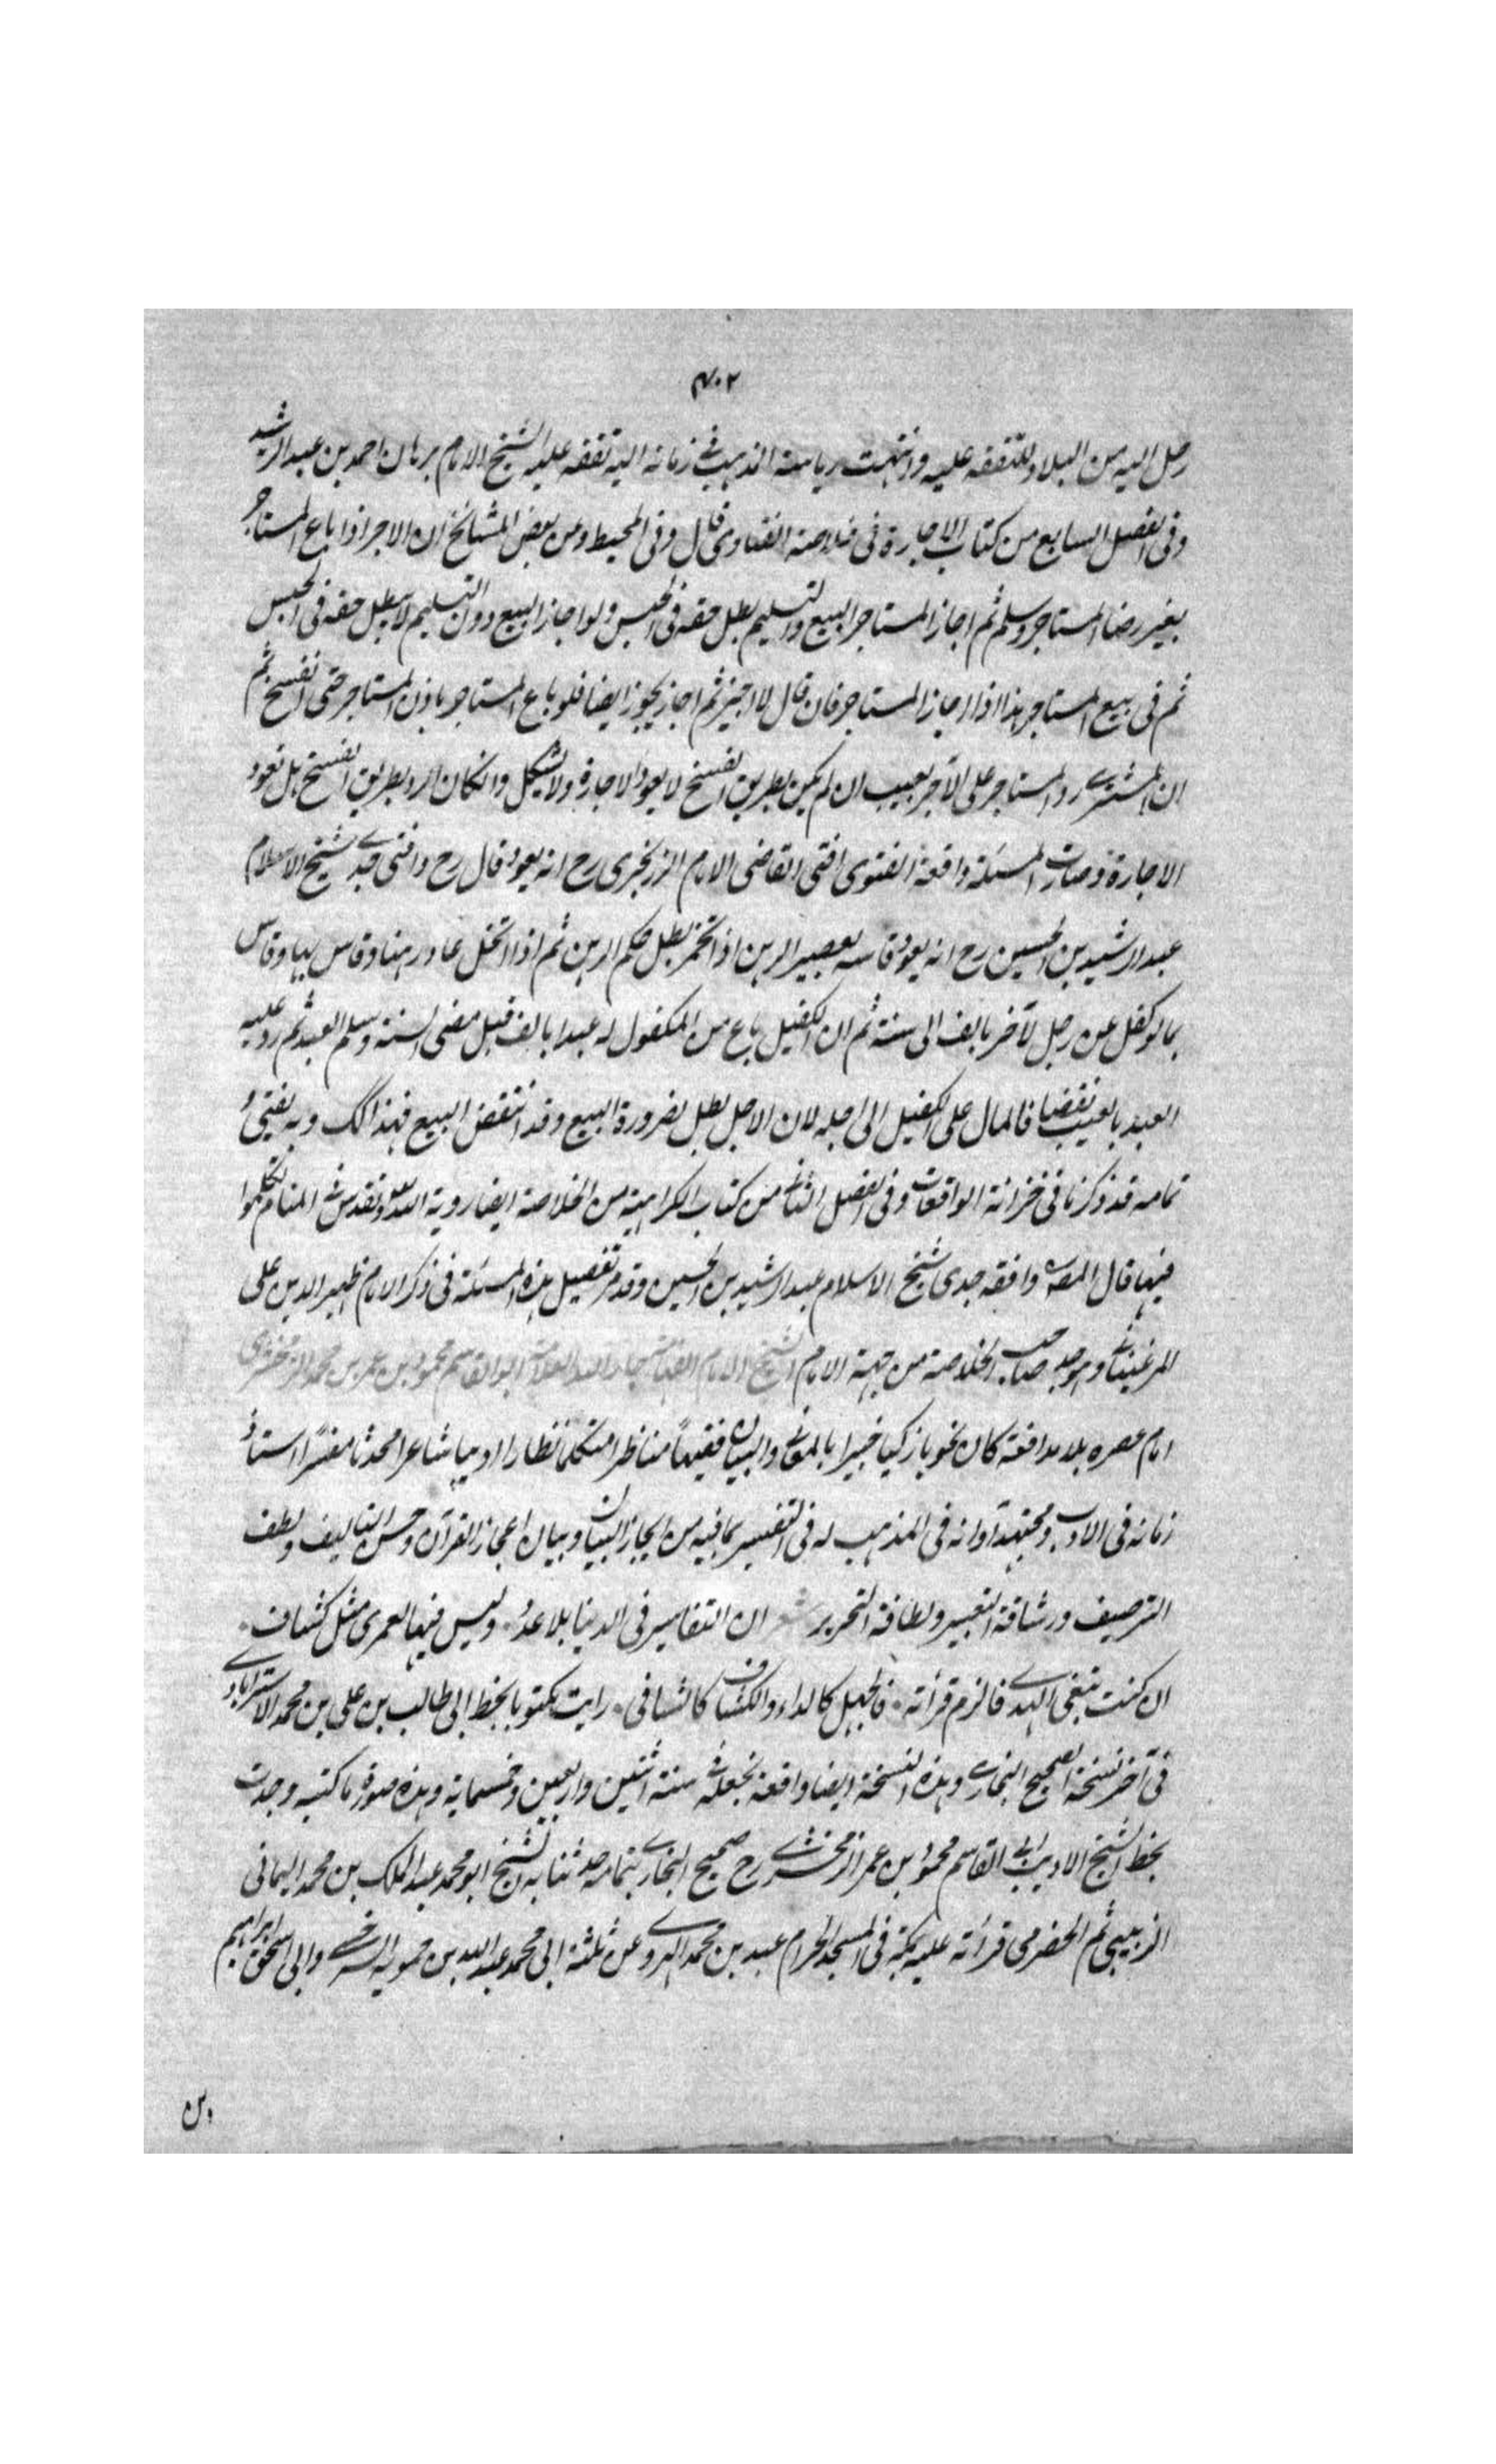 ٤٠٢
رحل اليه من البلاد للتفقه عليه وانتهت رياسة المذهب في زمانه اليه تفقه عليه الشيخ الامام برهان احمد بن عبد الرشيد
وفي الفصل السابع من كتاب الاجارة في خلاصة الفتاوى قال وفي المحيط وعن بعض المشائخ ان الاجر اذا باع المستاجر
بغير رضا المستاجر وسلم ثم اجاز المستاجر البيع والتسليم بطل حقه في الحبس ولو اجاز البيع دون التسليم لا يبطل حقه في الحبس
ثم في بيع المستاجر هذا اذا اجاز المستاجر فان قال لا اجيز ثم اجاز يجوز ايضا فلو باع المستاجر باذن المستاجر حتى انفسخ ثم
ان المشترى رد المستاجر على الآجر بعيب ان لم يكن بطريق الفسخ لا يعود الاجارة ولا يشكل وان كان الرد بطريق الفسخ هل تعود
الاجارة وصارت المسئلة واقعة الفتوى افتى القاضى الامام الزرنجرى رح انه يعود قال رح وافتى جدى شيخ الاسلام
عبد الرشيد بن الحسين رح انه يعود قاسه بعصير الرهن اذا تخمر بطل حكم الرهن ثم اذا تخلل عاد رهنا وقاس ايضا وقاس
بما لو كفل عن رجل لآخر بالف الى سنة ثم ان الكفيل باع من المكفول له عبدا بالف قبل مضى السنة وسلم العبد ثم رد عليه
العبد بالعيب بقضا فالمال على الكفيل الى اجله لان الاجل بطل بضرورة البيع وقد انتقض البيع فهذا كك وبه يفتى
تمامه قد ذكرنا في خزانة الواقعات وفي الفصل الثاني من كتاب الكراهية من الخلاصة ايضا روية الله وتقدس في المنام تكلموا
فيها قال المصـ وافقه جدى شيخ الاسلام عبد الرشيد بن الحسين وقد مر تفصيل هذه المسئلة في ذكر الامام ظهير الدين على
المرغينانى وهو جد صاحب الخلاصة من جهة الام الشيخ الامام العلامة جار الله العلامة ابو القاسم محمود بن عمر بن محمد الزمخشرى
امام عصره بلا مدافعة كان نحويا زكيا خبيرا بالمعانى والبيان فقيها مناظرا متكلما نظارا اديبا شاعرا محدثا مفسرا استاذ
زمانه في الادب ومجتهد اوانه في المذهب له في التفسير بما فيه من ايجاز البيان وبيان اعجاز القرآن وحسن التاليف ولطف
الترصيف ورشاقة التعبير ولطافة التحرير شعر ان التفاسير في الدنيا بلا عدد وليس فيها لعمرى مثل كشاف
ان كنت تبغى الهدى فالزم قرائته فالجهل كالداء والكشاف كالشافى رايت مكتوبا بخط ابى طالب بن على بن محمد الاسترابادى
في آخر نسخة الصحيح البخارى وهذه النسخة ايضا واقعة بخطه سنة اثنين واربعين وخمسماية وهذه صورة ما كتبه وجدت
بخط الشيخ الاديب ابى القاسم محمود بن عمر الزمخشرى رح صحيح البخارى بتمامه حدثنا به الشيخ ابو محمد عبد الملك بن محمد اليمانى
الزبيبى ثم الحضرمى قرائته عليه بمكة في المسجد الحرام عبد بن محمد الهروى عن ثلثة ابى محمد عبد الله بن حمويه السرخسى وابى اسحق ابراهيم